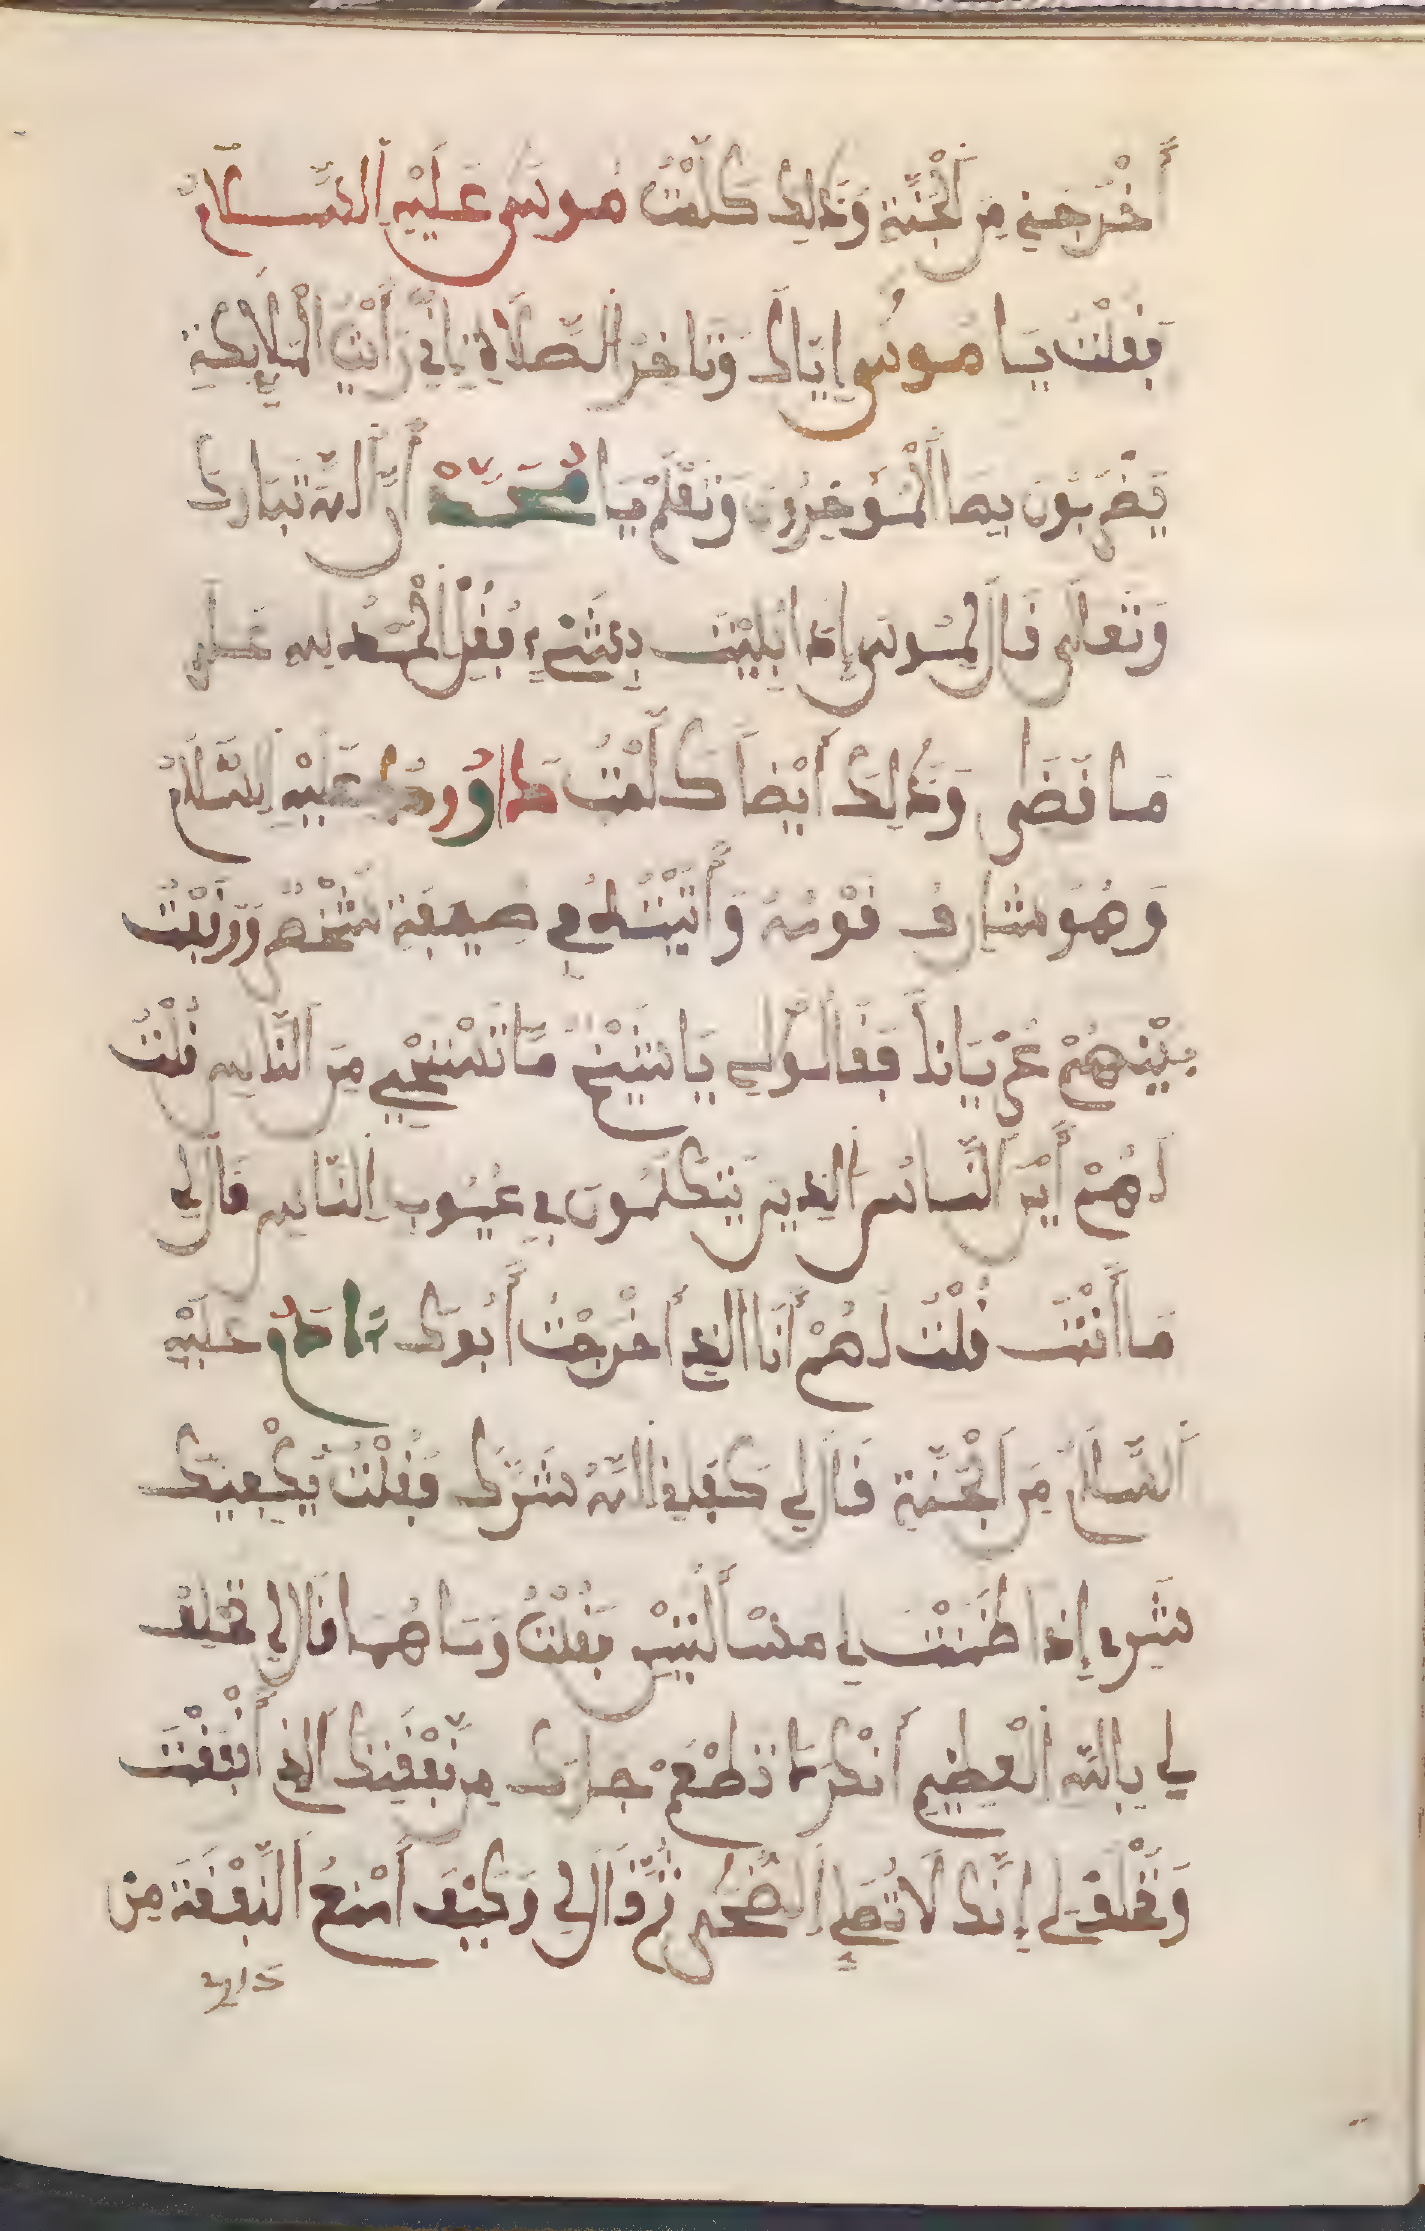 أَخْرَجَنِي مِنَ اَلْجَنَّةِ وَكَذَٰلِكَ كَلَّمْتُ مُوسَى عَلَيْهِ اِلسَّلَامُ
فَقُلْتُ يَا مُوسَى إِيَّاكَ وَتَاخِرَ الصَّلَاةِ إِنِّي رَأَيْتُ الْمَلَايِكَةِ
يَضْرِبُونَ بِهَا الْمُؤَخِّرُونَ وَتَعْلَمْ يَا مُحَمَّدْ أَنَّ اَللَّهَ تَبَارَكَ
وَتَعَالَى قَالَ لِمُوسَى إِذَا بُلِيتَ بِشَيْءٍ فَقُلْ اِلْحَمْدُ لِلَّهِ عَلَى
مَا قَضَى وَكَذَٰلِكَ أَيْضاً كَلَّمْتُ دَاوُودُ عَلَيْهِ اِلسَّلَامُ
وَهُوَ قَوْمُهُ وَأَتَيْتُهُ فِي صِيفَةِ
بَيْنَهُمْ عُرْيَاناً فَقَالُوا لِي يَا شَيْخُ مَا تَسْتَحْيِي مِنَ اَلنَّاسِ قُلْتُ
لَهُمْ أَيْنَ اَلنَّاسُ الَّذِينَ يَتَكَلَّمُونَ فِي عُيُوبِ اِلنَّاسِ قَالَ لِي
مَا أَنْتَ قُلْتُ لَهُمْ أَنَا الَّذِي أَخْرَجْتُ أَبُوكَ ءَادَمُ عَلَيْهِ
اَلسَّلَامُ مِنَ اَلْجَنَّةِ قَالَ لِي كَفَانِي اللَّهُ شَرَّكَ فَقُلْتُ يَكْفِيكَ
شَرِّي إِذَا ضَمَنْتَ لِي مَسْأَلَتَيْنِ فَقُلْتُ وَمَا هُمَا قَالَ لِي تَحْلِفْ
لِي بِاللَّهِ اَلْعَظِيمِ أَنَّكَ مَا تَطْعَمْ جَارَكَ مِن نَّفْقَتِكَ اَلَّذِي أَنْفَقْتَ
وَتَحْلِفْ لِي إِنَّكَ لَا تُصَلِّي اِلضُّحَى ثُمَّ قَالَ لِي وَكَيْفَ أَمْنَعُ اَلنَّفَقَةَ مِن